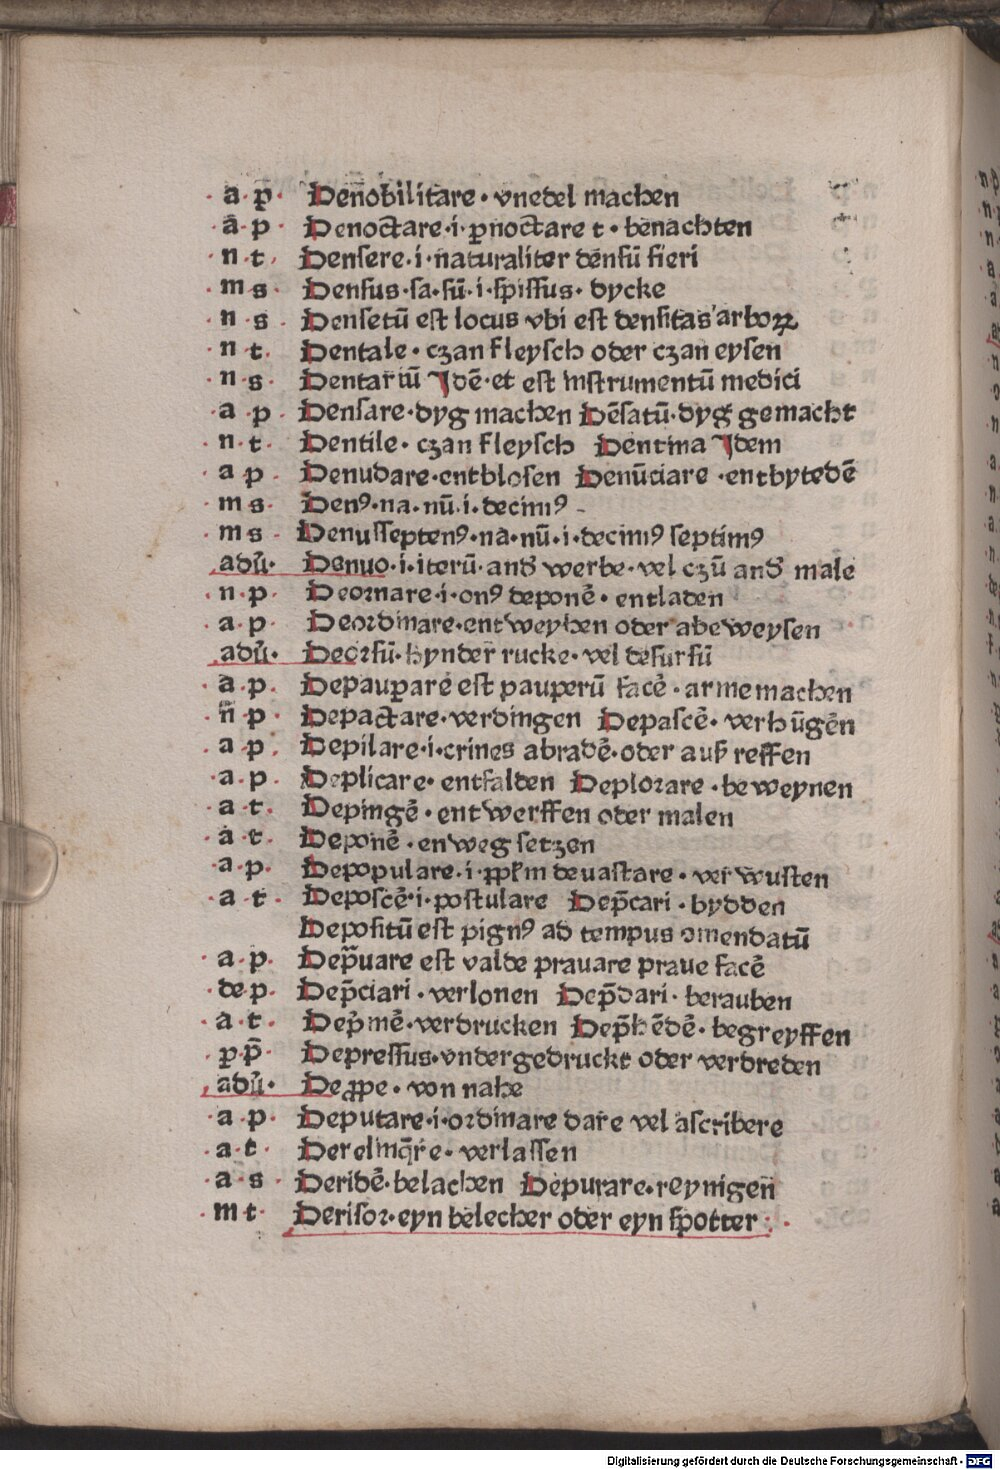 a·p· Deñobilitare· vnedel machen
a·p· Denoctare·i·ꝑnoctare t· benachten
n·t· Densere·i·naturaliter densū fieri
m s· Densus·sa·sū·i·spissus· dycke
n s· Densetū est locus vbi est densitas arboꝝ
n t· Dentale· czan fleysch oder czan eysen
n·s· Dentariū Idē·et est instrumentū medici
a·p· Densare·dyg machen Dēsatū·dyg gemacht
n·t· Dentile· czan fleysch Dentina Idem
a p· Denudare·entblosen Denūciare·entbytedē
m s· Denꝰ·na·nū·i·decimꝰ
m s· Denusseptenꝰ·na·nū·i·decimꝰ septimꝰ
adū· Denuo·i·iterū·and̄ werbe·vel czū and̄ male
n·p· Deornare·i·onꝰ deponē· entladen
a·p· Deordinare·entweyhen oder abeweysen
adū· Deorsū·hynder rucke·vel desursū
a·p· Depauꝑare est pauperū facē·arme machen
n·p· Depactare·verdingen Depascē· verhūgēn
a·p· Depilare·i·crines abradē·oder auß reffen
a·p· Deplicare· entfalden Deplorare·beweynen
a·t· Depingē·entwerffen oder malen
a·t· Deponē·enweg setzen
a·p· Depopulare·i·ꝓpłm deuastare· verwusten
a·t· Deposcē·i·postulare Dep̄cari·bydden
Depositū est pignꝰ ad tempus omendatū
a·p· Dep̄uare est valde prauare praue facē
de·p· Dep̄ciari·verlonen Dep̄dari·berauben
a·t· Dep̄mē·verdrucken Dep̄hēdē·begreyffen
p·p̄· Depressus·vndergedruckt oder verdreden
adū· Deꝓpe·von nahe
a·p· Deputare·i·ordinare dare vel ascribere
a·t· Derelinq̄re·verlassen
a·s· Deridē·belachen Depurare·reynigen̄
m t· Derisor·eyn belecher oder eyn spotter
Digitalisierung gefördert durch die Deutsche Forschungsgemeinschaft · DFG